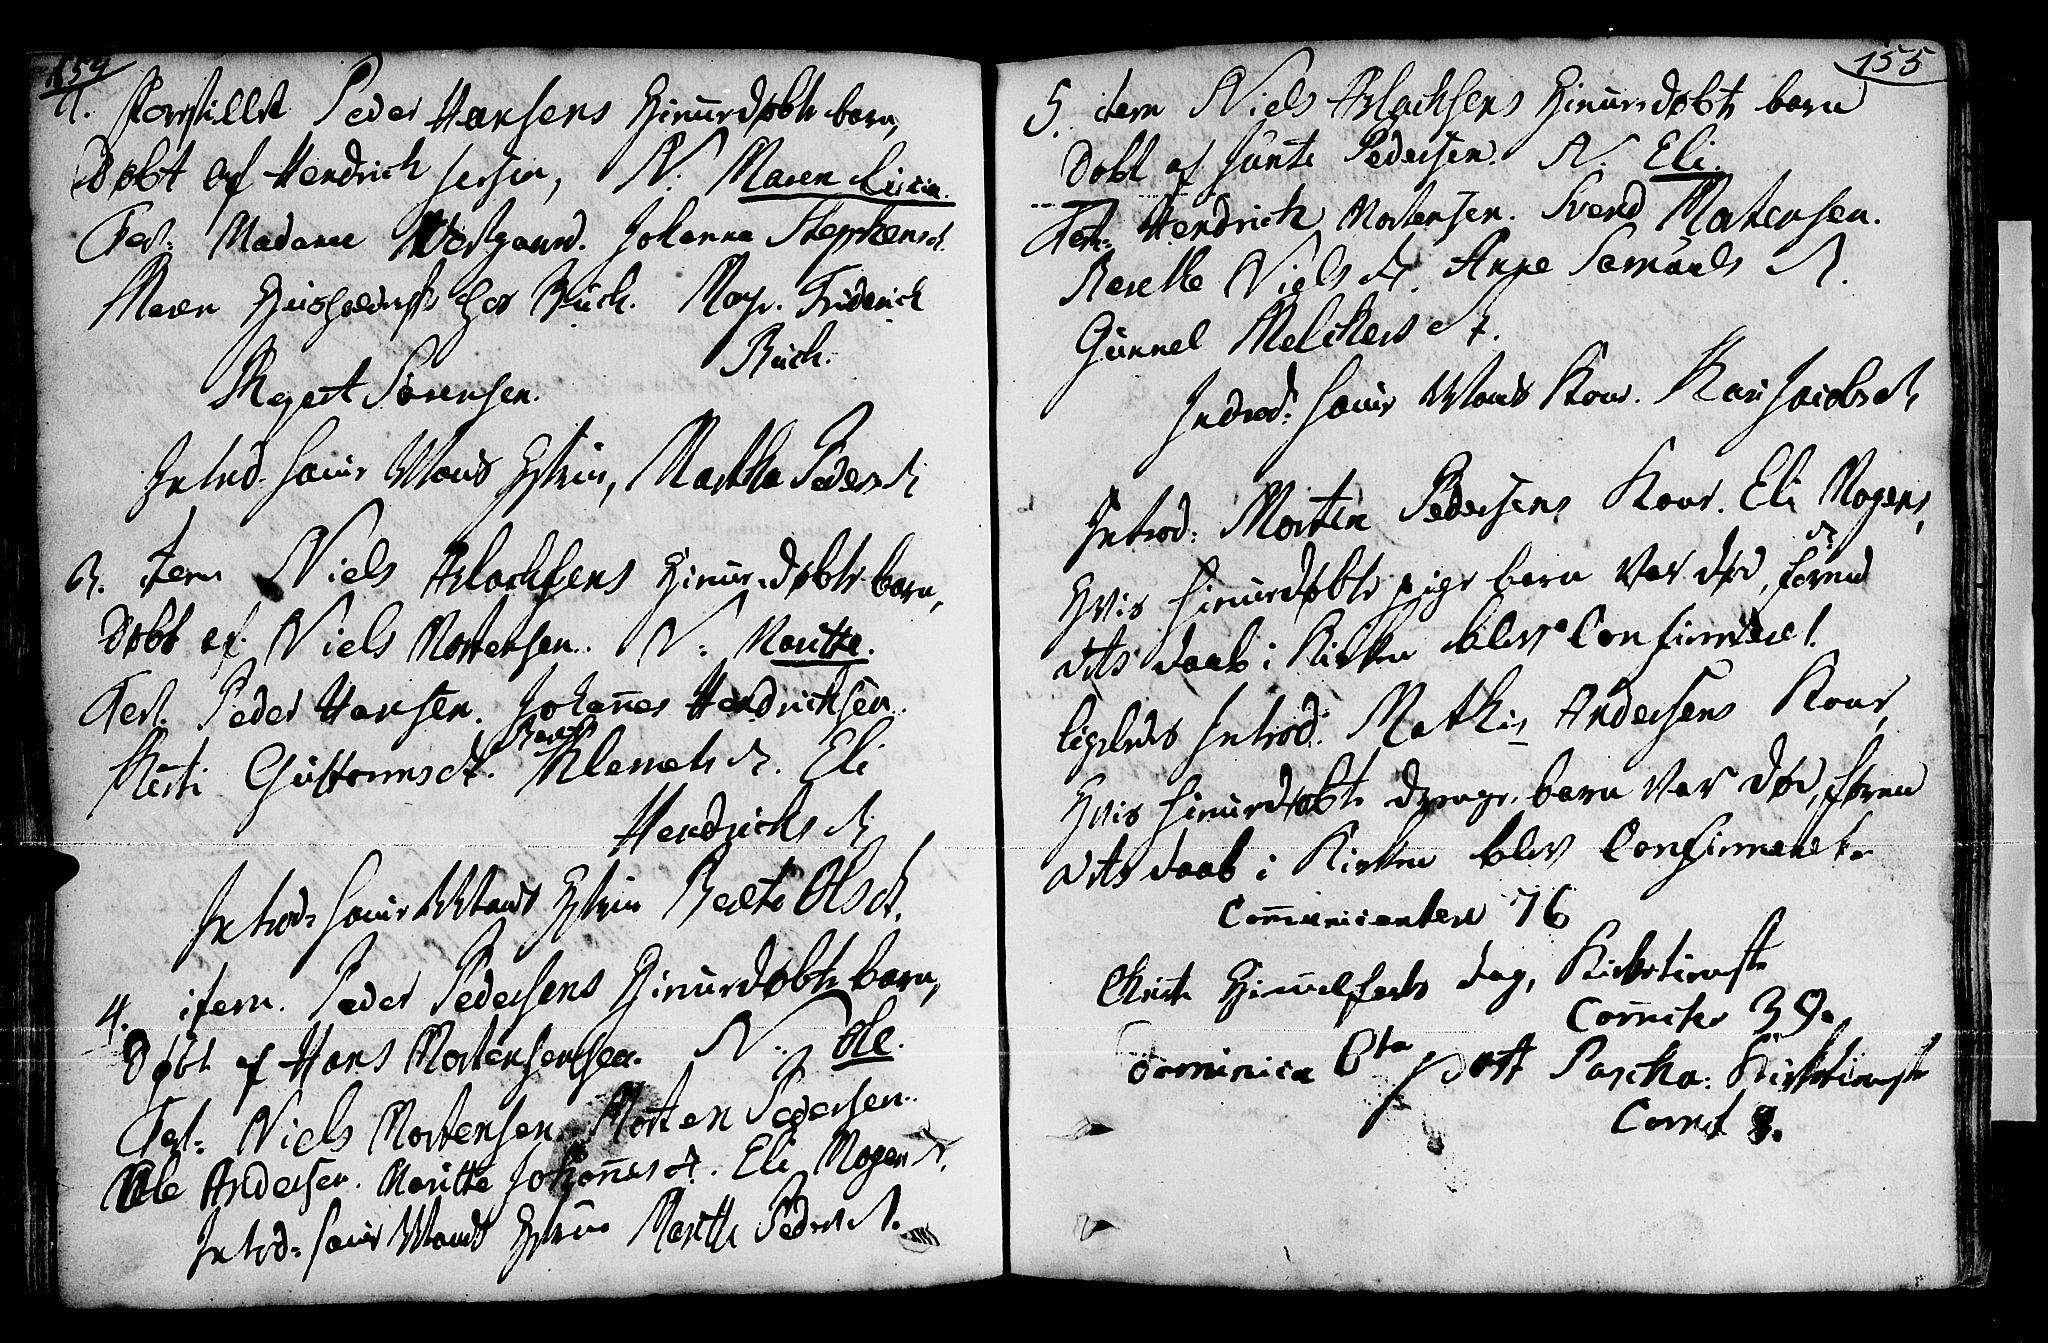 154
Forstillet Peder Hansens Hiemedøbte barn,
Døbt af Hendrich Jersen, N. Maren
Test: Madame Vestgaard. Johanna Stephensd.
Maren hos Buch. Monsr. Friderich
Buch.
Sørensen.
Introd. samme Mands Hstru, Martha Pedersd.
3. item Niels Aslachsens Hiemedøbte barn,
Døbt af Niels Mortensen. N: Maritta.
Test. Peder Hansen. Johannes Hendrichsen
Berit
Kirsti Guttormsd. Klemetsd. Eli
Hendrichsd.
Introd: samme Mands Hstru Berte Olsd.
4. item. Peder Pedersens Hiemedøbte barn,
Døbt af Hans Mortensensen. N. Ole.
Test: Niels Mortensen. Morten Pedersen.
Ole Andersen. Maritta Johannesd. Eli Mogensd.
Introd: samme Mands Hstru Marith Pedersd.
155
5. item Niels Aslachsens Hiemedøbte barn
Døbt af Junte Pedersen. N. Eli.
Test: Hendrich Mortensen. Svend Mortensen.
Berethe Nielsd. Anne Samuelsd.
Gunnel Melchersd.
Introd: samme Mands Kone. Kari Jacobsd.
Introd: Morten Pedersens Kone. Eli Mogens
d.
Hvis hiemedøbte pige barn Var død, forend
dets daab i Kirken blev Confirmeret.
ligeledes Introd. Mathis Andersens Kone,
Hvis hiemedøbte drenge barn Var død, forend
dets daab i Kirken blev Confirmeret.
Communicantere 76
Christi Himmelfarts dag, Kirketieneste
Comniter 39.
Dominica 6ta post Pascha. Kirketieneste
Comt 8.